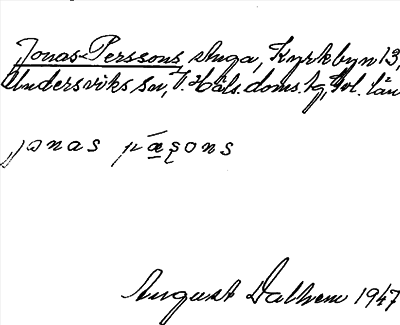 Jonas-Perssons stuga, Kyrkbyn 13,
Undersviks sn, V. Häls. doms. tg, Gvl. län
jonas pæʂons
August Dalhem 1947